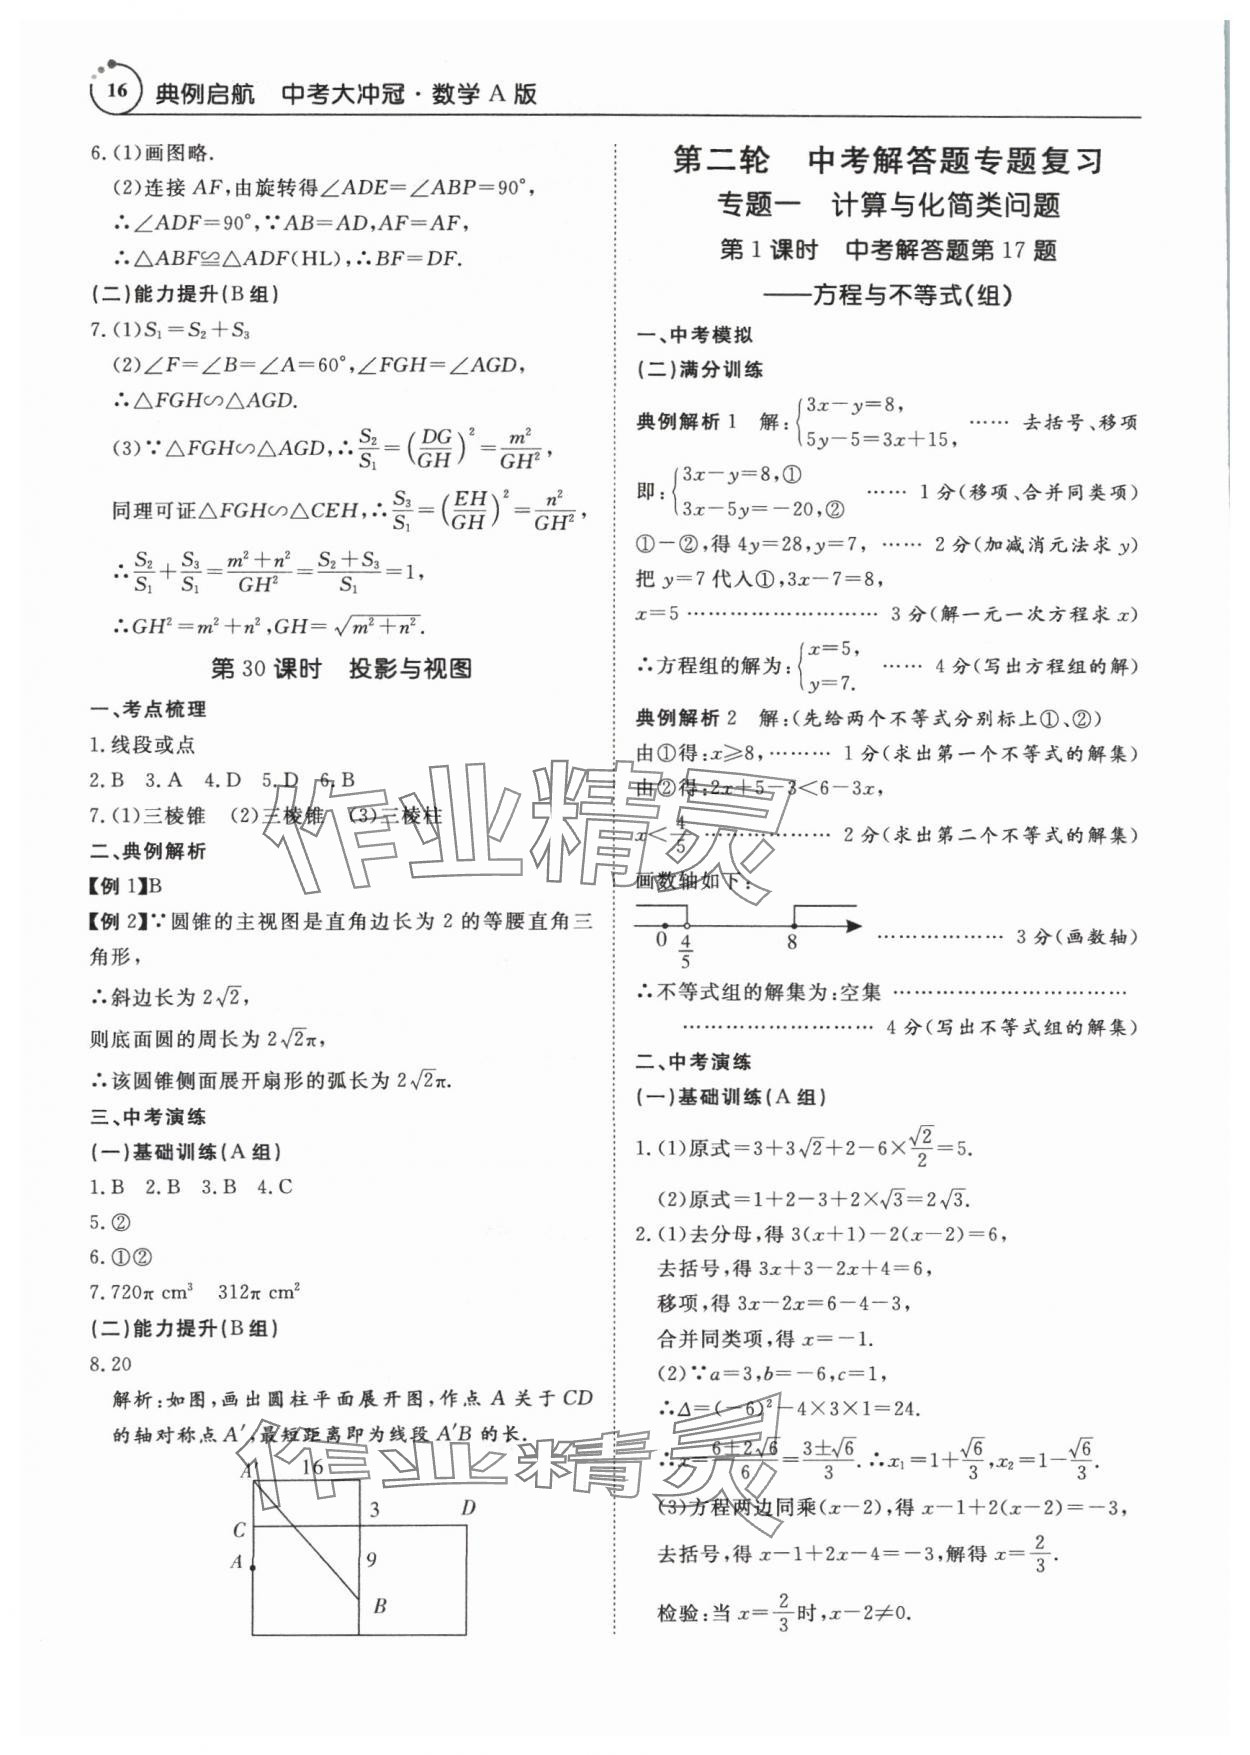 16 典例启航 中考大冲冠·数学 A 版
6.(1)画图略.
(2)连接 AF,由旋转得∠ADE=∠ABP=90°,
∴∠ADF=90°,∵AB=AD,AF=AF,
∴△ABF≌△ADF(HL),∴BF=DF.
(二)能力提升(B 组)
7.(1)S₁=S₂+S₃
(2)∠F=∠B=∠A=60°,∠FGH=∠AGD,
∴△FGH∽△AGD.
(3)∵△FGH∽△AGD,∴S₂/S₁=(DG/GH)²=m²/GH²,
同理可证△FGH∽△CEH,∴S₃/S₁=(EH/GH)²=n²/GH²,
∴S₂/S₁+S₃/S₁=(m²+n²)/GH²=(S₂+S₃)/S₁=1,
∴GH²=m²+n²,GH=√(m²+n²).
第 30 课时 投影与视图
一、考点梳理
1.线段或点
2.B 3.A 4.D 5.D 6.B
7.(1)三棱锥 (2)三棱锥 (3)三棱柱
二、典例解析
【例 1】B
【例 2】∵圆锥的主视图是直角边长为 2 的等腰直角三
角形,
∴斜边长为 2√2,
则底面圆的周长为 2√2π,
∴该圆锥侧面展开扇形的弧长为 2√2π.
三、中考演练
(一)基础训练(A 组)
1.B 2.B 3.B 4.C
5.②
6.①②
7.720π cm³ 312π cm²
(二)能力提升(B 组)
8.20
解析:如图,画出圆柱平面展开图,作点 A 关于 CD
的轴对称点 A′,最短距离即为线段 A′B 的长.
A′ 16
3 D
C
A 9
B
第二轮 中考解答题专题复习
专题一 计算与化简类问题
第 1 课时 中考解答题第 17 题
——方程与不等式(组)
一、中考模拟
(二)满分训练
典例解析 1 解:{3x-y=8, 5y-5=3x+15, …… 去括号、移项
即:{3x-y=8,① 3x-5y=-20,② …… 1 分(移项、合并同类项)
①-②,得 4y=28,y=7, …… 2 分(加减消元法求 y)
把 y=7 代入①,3x-7=8,
x=5 ……………………… 3 分(解一元一次方程求 x)
∴方程组的解为:{x=5, y=7. …… 4 分(写出方程组的解)
典例解析 2 解:(先给两个不等式分别标上①、②)
由①得:x≥8, ……… 1 分(求出第一个不等式的解集)
由②得:2x+5-3<6-3x,
x<4/5 ……………… 2 分(求出第二个不等式的解集)
画数轴如下:
0 4/5 8 ……………… 3 分(画数轴)
∴不等式组的解集为:空集 ……………………………
……………………… 4 分(写出不等式组的解集)
二、中考演练
(一)基础训练(A 组)
1.(1)原式=3+3√2+2-6×√2/2=5.
(2)原式=1+2-3+2×√3=2√3.
2.(1)去分母,得 3(x+1)-2(x-2)=6,
去括号,得 3x+3-2x+4=6,
移项,得 3x-2x=6-4-3,
合并同类项,得 x=-1.
(2)∵a=3,b=-6,c=1,
∴Δ=(-6)²-4×3×1=24.
∴x=(6±2√6)/6=(3±√6)/3.∴x₁=1+√6/3,x₂=1-√6/3.
(3)方程两边同乘(x-2),得 x-1+2(x-2)=-3,
去括号,得 x-1+2x-4=-3,解得 x=2/3.
检验:当 x=2/3时,x-2≠0.
作业精灵
作业精灵